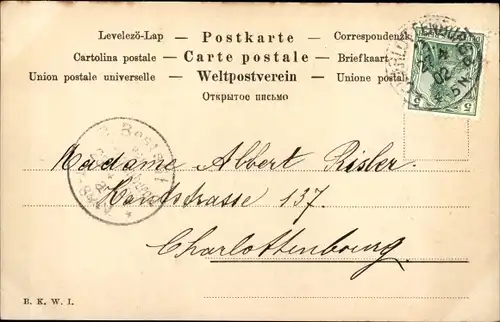 Levelező-Lap — Postkarte — Correspondenzk
Cartolina postale — Carte postale — Briefkaart
Union postale universelle — Weltpostverein — Unione postal
Открытое письмо
27 4
02
5
Bestellt
Madame Albert Risler.
Kantstrasse 137.
Charlottenbourg.
B. K. W. I.